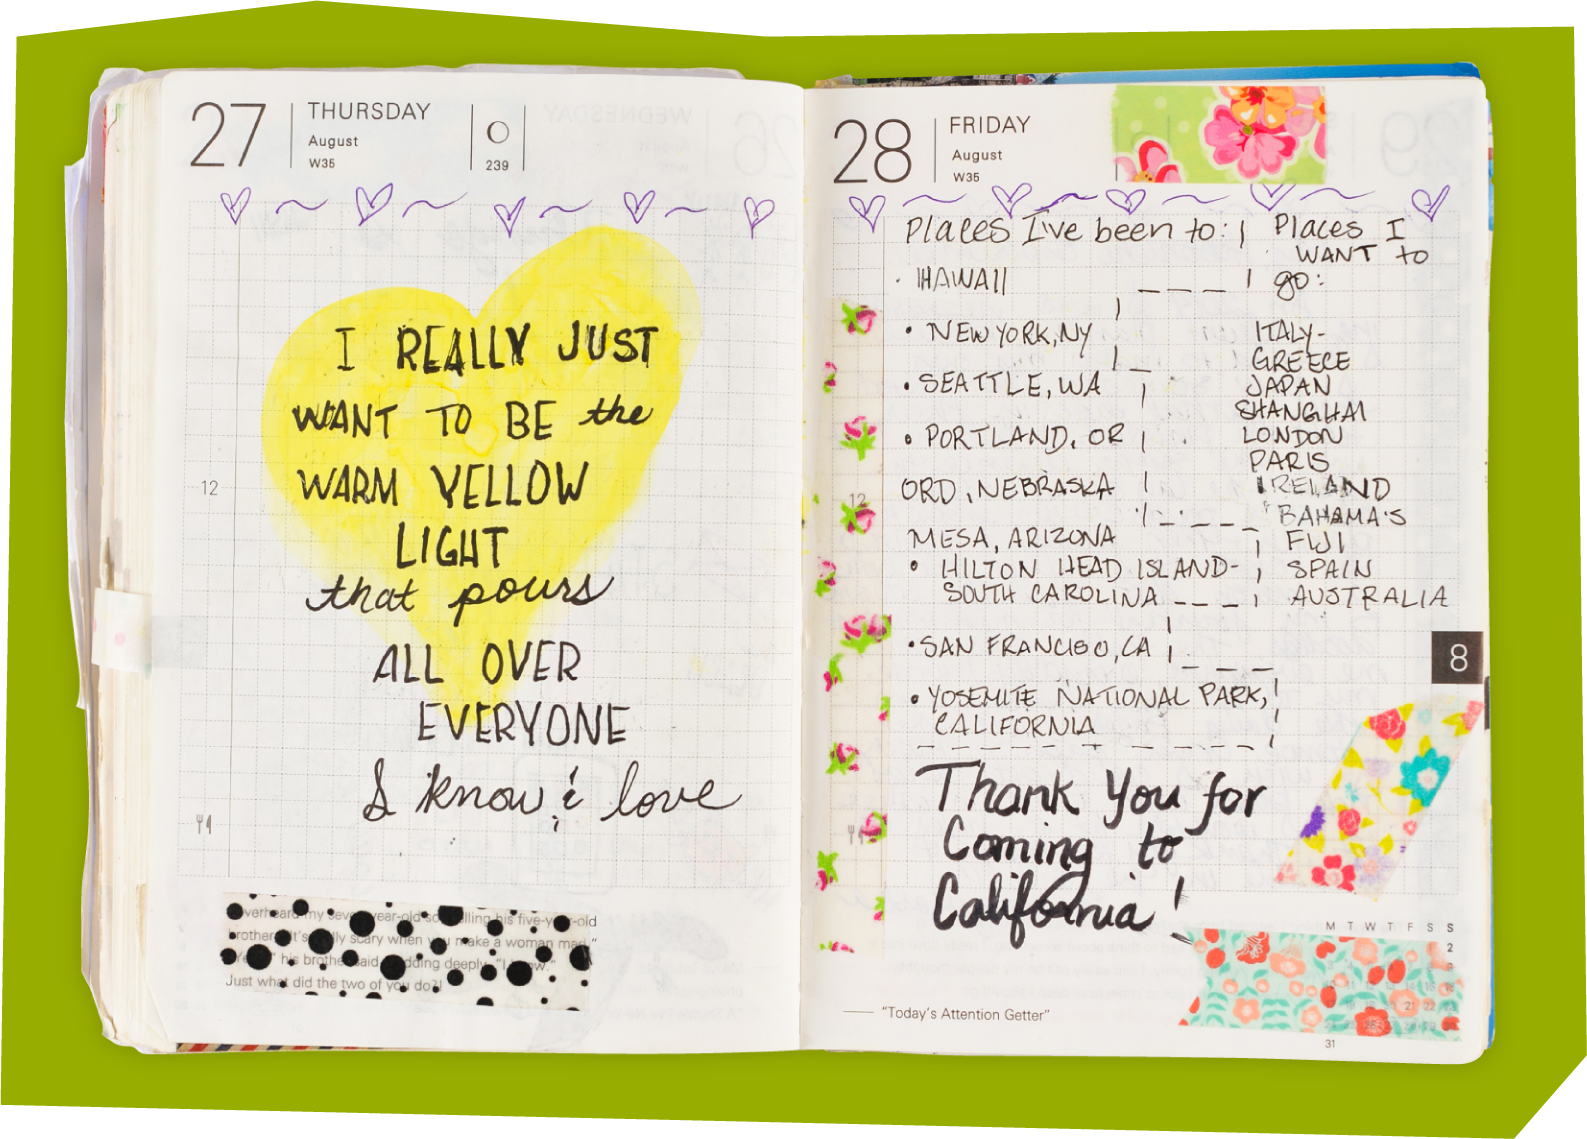 27 THURSDAY
August
W35
239
I REALLY JUST
WANT TO BE the
WARM YELLOW
LIGHT
that pours
ALL OVER
EVERYONE
I know & love
12
overheard my seven-year-old son telling his five-year-old
brother, "It's really scary when you make a woman mad."
"Yeah," his brother said, nodding deeply, "I know."
Just what did the two of you do?!
28 FRIDAY
August
W35
Places I've been to:
HAWAII
• NEW YORK, NY
• SEATTLE, WA
• PORTLAND, OR
ORD, NEBRASKA
MESA, ARIZONA
• HILTON HEAD ISLAND-
SOUTH CAROLINA
• SAN FRANCISO, CA
• YOSEMITE NATIONAL PARK,
CALIFORNIA
Places I
WANT to
go:
ITALY-
GREECE
JAPAN
SHANGHAI
LONDON
PARIS
IRELAND
BAHAMA'S
FIJI
SPAIN
AUSTRALIA
12
8
Thank You for
Coming to
California!
M T W T F S S
2
31
"Today's Attention Getter"